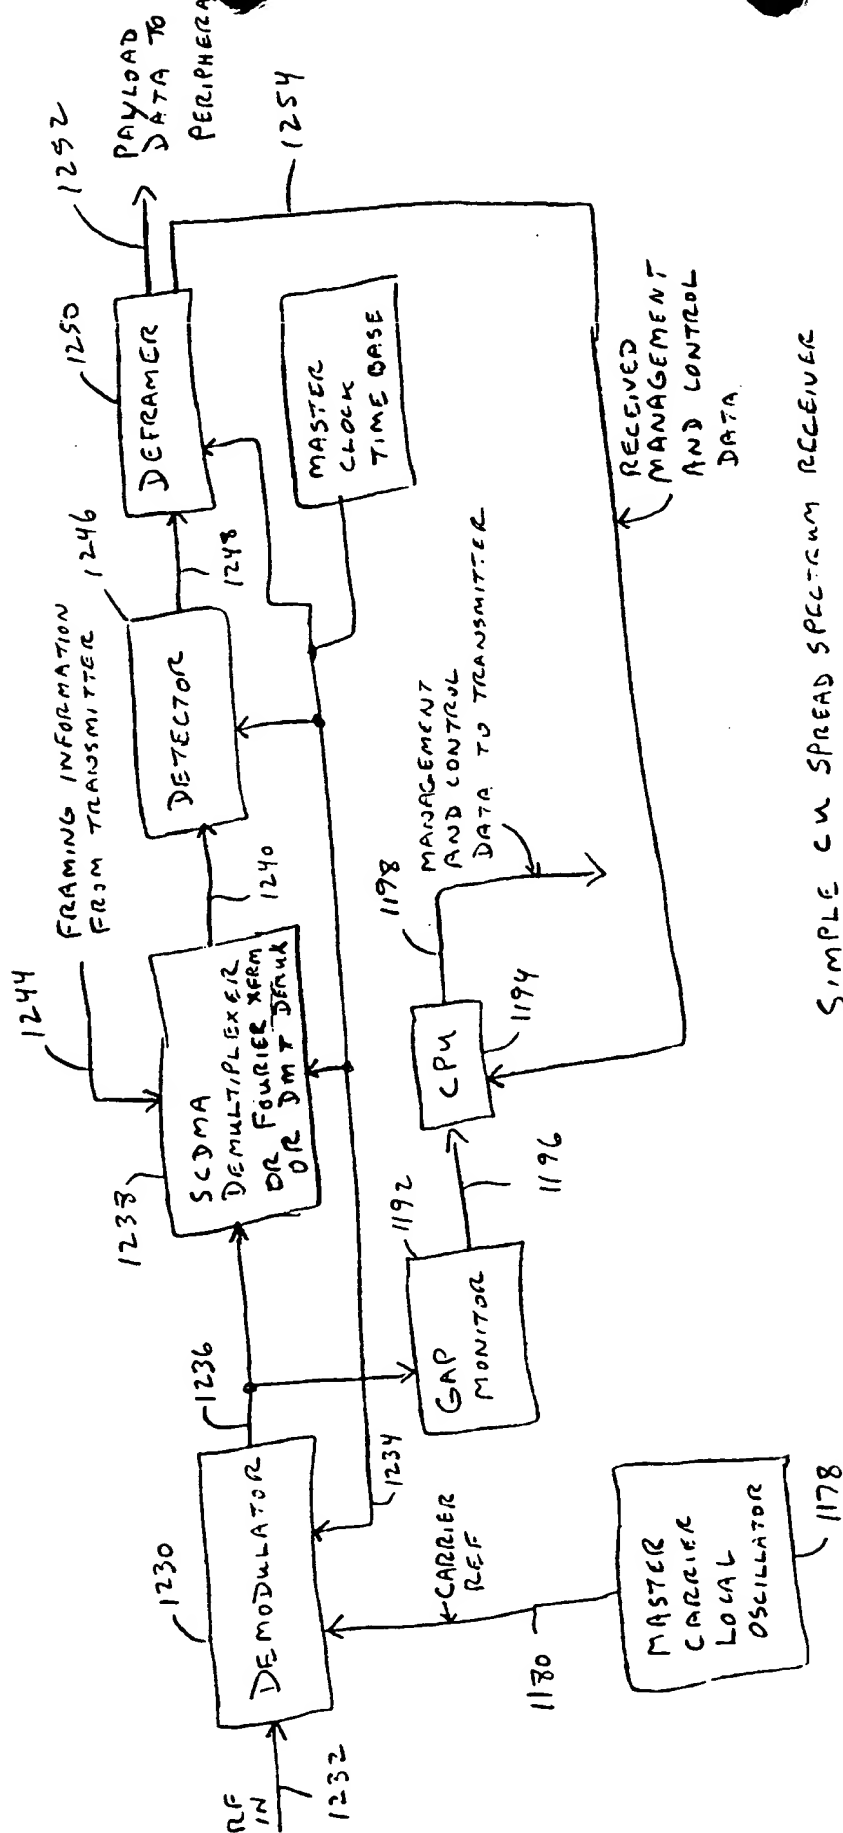 RF
IN
1232
1230
DEMODULATOR
1236
1234
CARRIER
REF
1180
MASTER
CARRIER
LOCAL
OSCILLATOR
1178
1238
SCDMA
DEMULTIPLEXER
OR FOURIER XFRM
OR DMT DEMUX
1244
FRAMING INFORMATION
FROM TRANSMITTER
1240
1246
DETECTOR
1248
1250
DEFRAMER
1252
PAYLOAD
DATA TO
1254
MASTER
CLOCK
TIME BASE
1192
GAP
MONITOR
1196
CPU
1194
1198
MANAGEMENT
AND CONTROL
DATA TO TRANSMITTER
RECEIVED
MANAGEMENT
AND CONTROL
DATA
SIMPLE CU SPREAD SPECTRUM RECEIVER